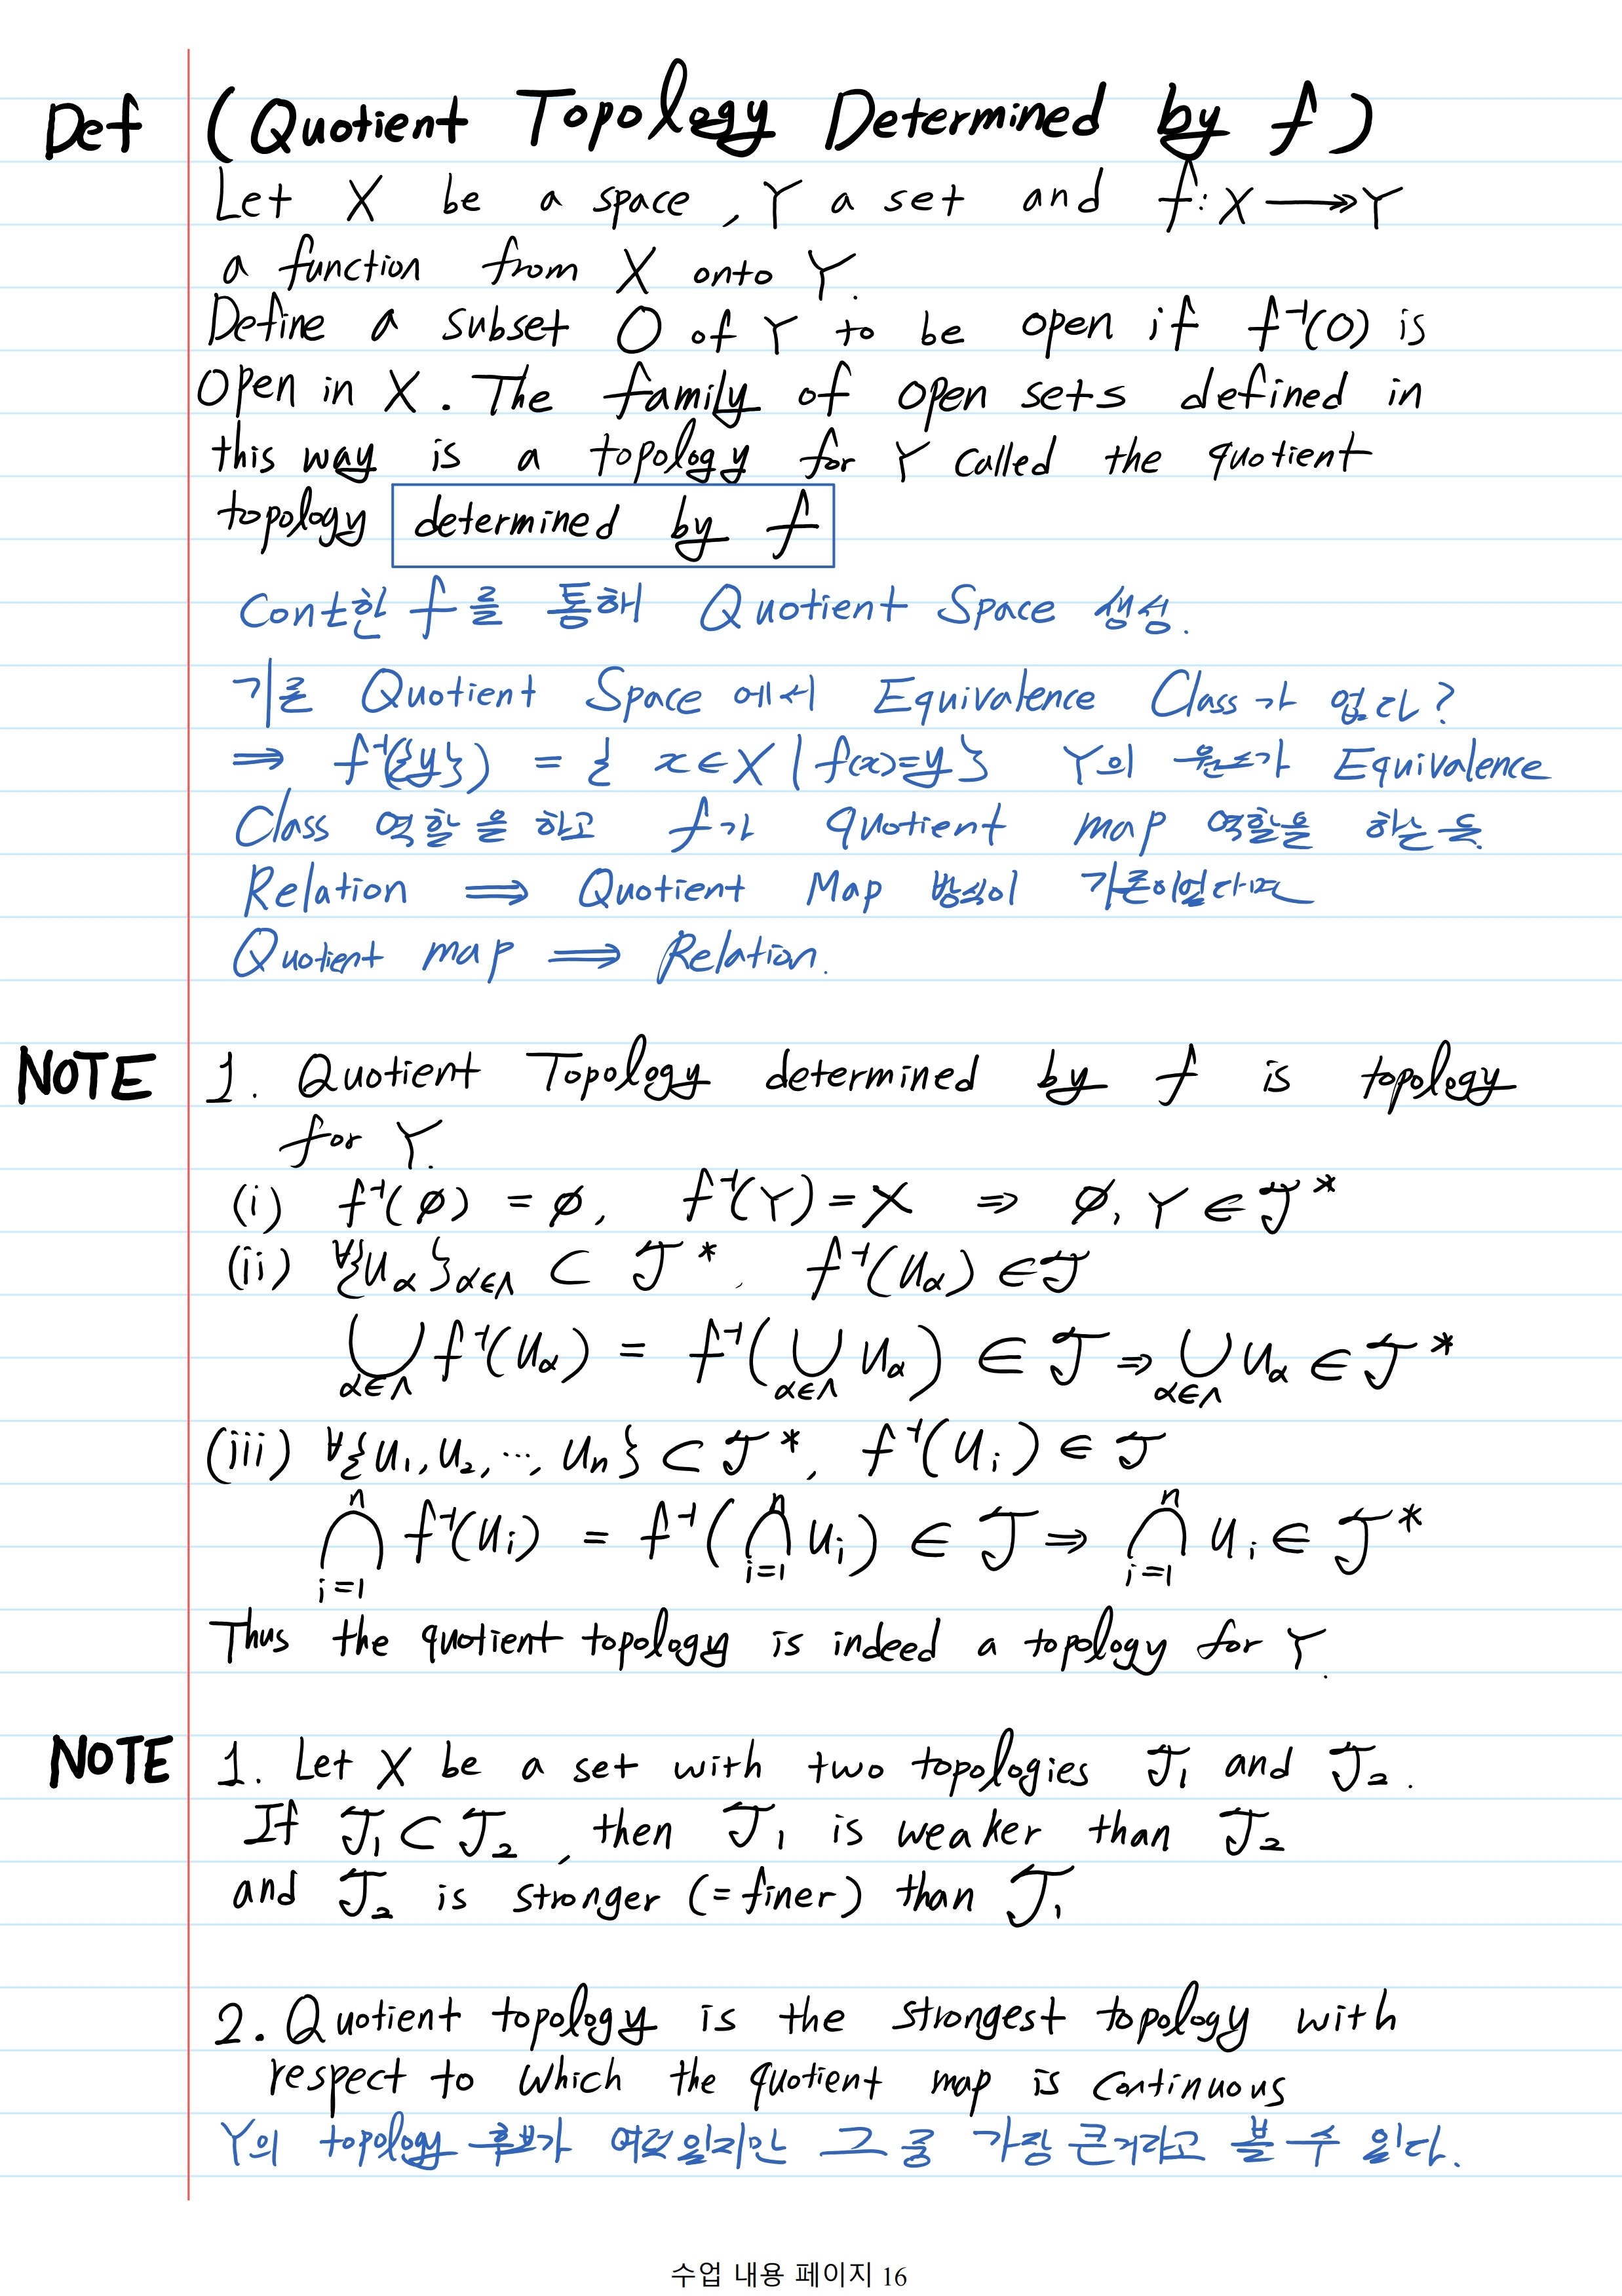 Def (Quotient Topology Determined by f)
Let X be a space, Y a set and f: X ⟶ Y
a function from X onto Y.
Define a subset O of Y to be open if f⁻¹(O) is
open in X. The family of open sets defined in
this way is a topology for Y called the quotient
topology determined by f
Conti한 f를 통해 Quotient Space 생성.
기존 Quotient Space에서 Equivalence Class가 없다?
⟹ f⁻¹({y}) = { x∈X | f(x)=y } Y의 원소가 Equivalence
Class 역할을 하고 f가 quotient map 역할을 하는 듯.
Relation ⟹ Quotient Map 방식이 기존이었다면
Quotient map ⟹ Relation.
NOTE 1. Quotient Topology determined by f is topology
for Y.
(i) f⁻¹(∅) = ∅, f⁻¹(Y) = X ⇒ ∅, Y ∈ 𝒥*
(ii) ∀{U_α}_{α∈Λ} ⊂ 𝒥*, f⁻¹(U_α) ∈ 𝒥
⋃_{α∈Λ} f⁻¹(U_α) = f⁻¹(⋃_{α∈Λ} U_α) ∈ 𝒥 ⇒ ⋃_{α∈Λ} U_α ∈ 𝒥*
(iii) ∀{U₁, U₂, ⋯, Uₙ} ⊂ 𝒥*, f⁻¹(U_i) ∈ 𝒥
⋂_{i=1}^{n} f⁻¹(U_i) = f⁻¹(⋂_{i=1}^{n} U_i) ∈ 𝒥 ⇒ ⋂_{i=1}^{n} U_i ∈ 𝒥*
Thus the quotient topology is indeed a topology for Y.
NOTE 1. Let X be a set with two topologies 𝒥₁ and 𝒥₂.
If 𝒥₁ ⊂ 𝒥₂, then 𝒥₁ is weaker than 𝒥₂
and 𝒥₂ is stronger (=finer) than 𝒥₁
2. Quotient topology is the strongest topology with
respect to which the quotient map is continuous
Y의 topology 후보가 여럿일지만 그 중 가장 큰거라고 볼 수 있다.
수업 내용 페이지 16